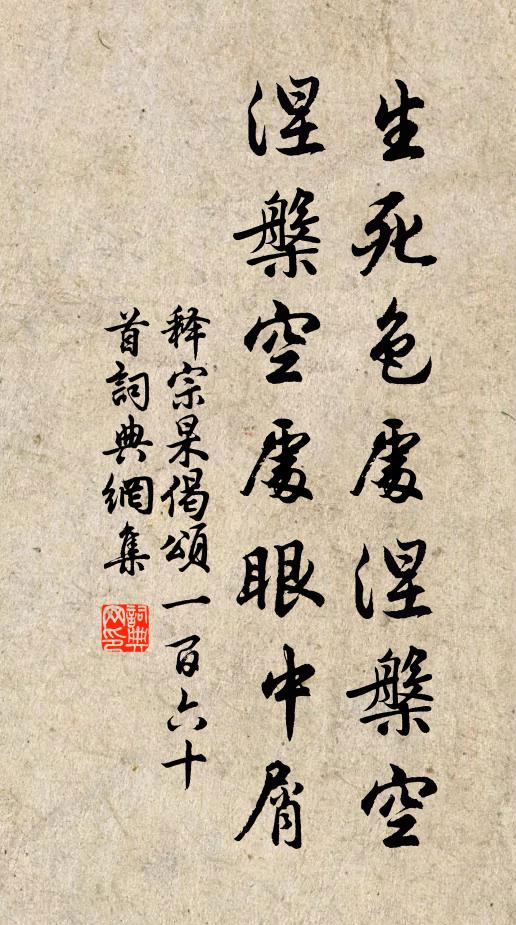 生死色處涅槃空
涅槃空處眼中屑
释宗杲偈頌一百六十
首詞典網集
詞典
网印